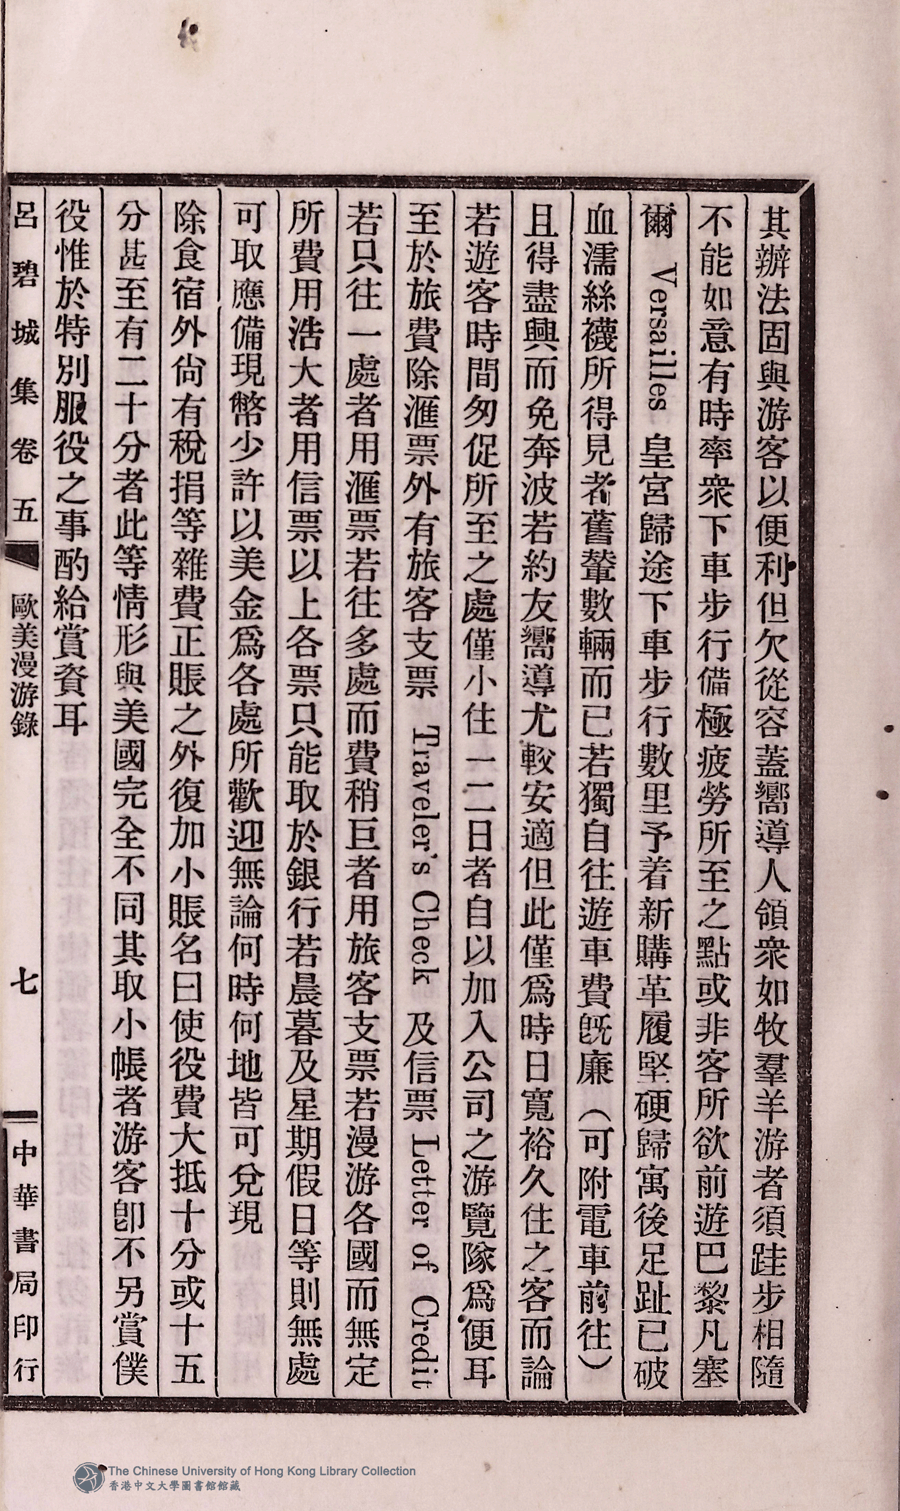 其辦法固與游客以便利但欠從容蓋嚮導人領衆如牧羣羊游者須跬步相隨
不能如意有時率衆下車步行備極疲勞所至之點或非客所欲前遊巴黎凡塞
爾 Versailles 皇宮歸途下車步行數里予着新購革履堅硬歸寓後足趾已破
血濡絲襪所得見者舊輦數輛而已若獨自往遊車費旣廉（可附電車前往）
且得盡興而免奔波若約友嚮導尤較安適但此僅爲時日寬裕久住之客而論
若遊客時間匆促所至之處僅小住一二日者自以加入公司之游覽隊爲便耳
至於旅費除滙票外有旅客支票 Traveler's Check 及信票 Letter of Credit
若只往一處者用滙票若往多處而費稍巨者用旅客支票若漫游各國而無定
所費用浩大者用信票以上各票只能取於銀行若晨暮及星期假日等則無處
可取應備現幣少許以美金爲各處所歡迎無論何時何地皆可兌現
除食宿外尙有稅捐等雜費正賬之外復加小賬名曰使役費大抵十分或十五
分甚至有二十分者此等情形與美國完全不同其取小帳者游客卽不另賞僕
役惟於特別服役之事酌給賞資耳
呂碧城集卷五 歐美漫游錄 七 中華書局印行
The Chinese University of Hong Kong Library Collection
香港中文大學圖書館館藏